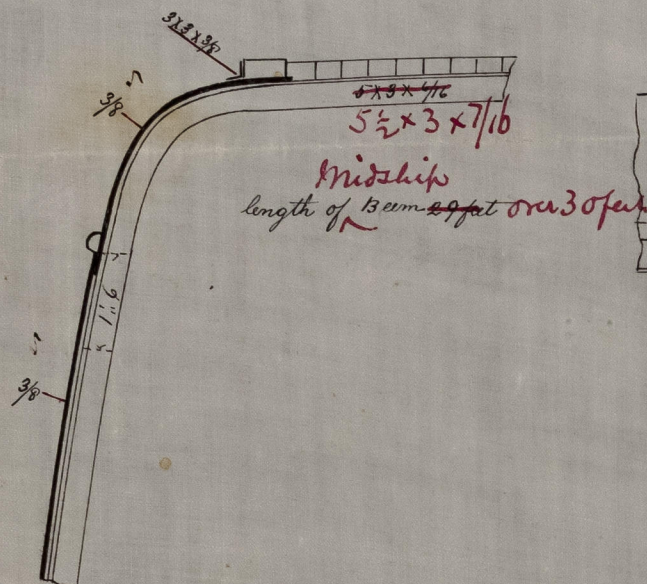 3x3x3/8
3/8
5 x 3 x 6/16
5 1/2 x 3 x 7/16
Midship
length of Beem 29 feet over 30 feet
1"6
3/8